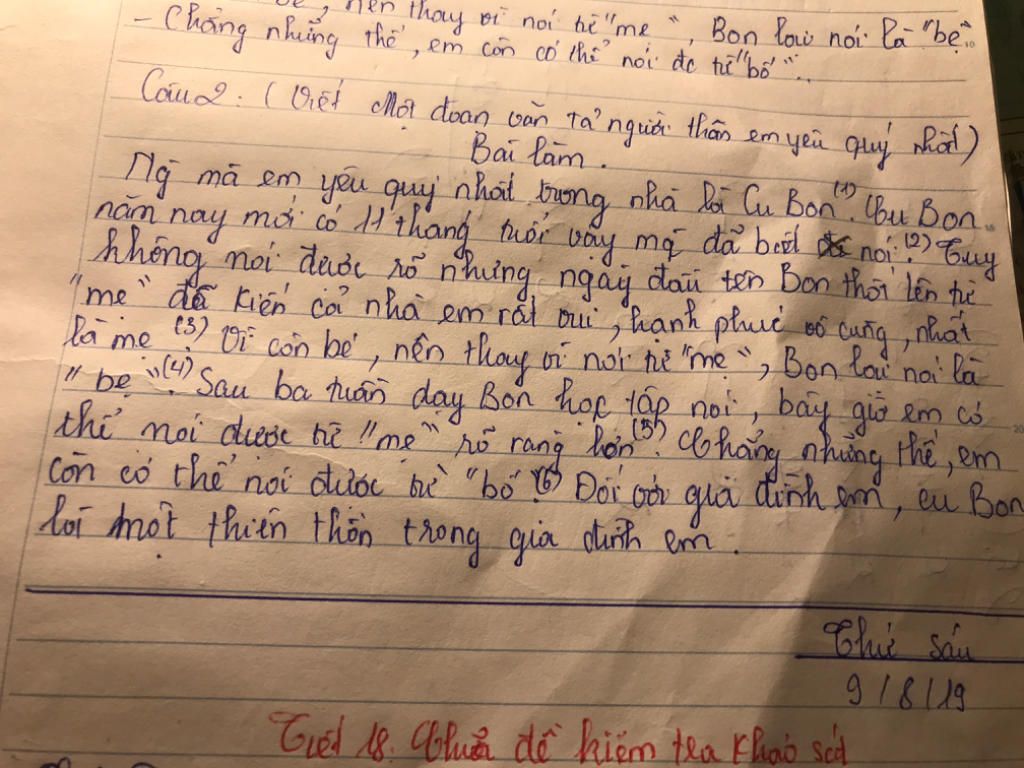 bé, nên thay vì nói từ "mẹ", Bon lại nói là "bẹ"..
- Chẳng những thế, em còn có thể nói đc từ "bố"...
Câu 2: (Viết một đoạn văn tả người thân em yêu quý nhất)
Bài làm.
Ng mà em yêu quý nhất trong nhà là Cu Bon (1). Cu Bon
năm nay mới có 11 tháng tuổi vậy mà đã biết nói (2). Tuy
không nói được rõ nhưng ngày đầu tiên Bon thốt lên từ
"mẹ" đã kiến cả nhà em rất vui, hạnh phúc vô cùng, nhất
là mẹ (3). Vì còn bé, nên thay vì nói từ "mẹ", Bon lại nói là
"bẹ" (4). Sau ba tuần dạy Bon học tập nói, bây giờ em có
thể nói được từ "mẹ" rõ ràng hơn (5). Chẳng những thế, em
còn có thể nói được từ "bố" (6). Đối với già đình em, cu Bon
là một thiên thần trong gia đình em.
Thứ sáu
9/8/19
Tiết 18. Chữa đề kiểm tra khảo sát